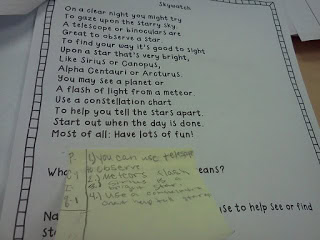 Skywatch
On a clear night you might try
To gaze upon the starry sky.
A telescope or binoculars are
Great to observe a star.
To find your way it's good to sight
Upon a star that's very bright,
Like Sirius or Canopus,
Alpha Centauri or Arcturus.
You may see a planet or
A flash of light from a meteor.
Use a constellation chart
To help you tell the stars apart.
Start out when the day is done.
Most of all: Have lots of fun!
1) you can use
observe.
2.) Meteors flash
4.) Use a
eans?
use to help see or find